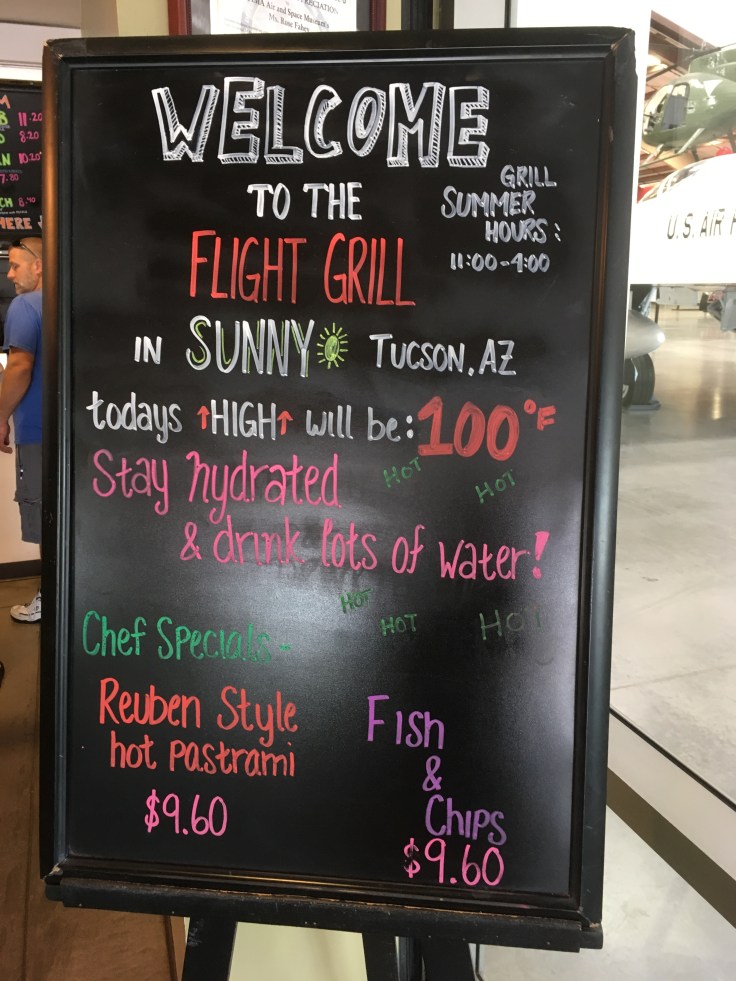 Air and Space Museum's
Ms. Rose Fahey
11.20
8.20
10.20
7.80
8.
HERE
WELCOME
TO THE
FLIGHT GRILL
GRILL
SUMMER
HOURS:
11:00-4:00
IN SUNNY TUCSON, AZ
todays ↑HIGH↑ will be: 100°F
HOT
HOT
Stay hydrated
& drink lots of water!
HOT
HOT
HOT
Chef Specials-
Reuben Style
hot Pastrami
$9.60
Fish
&
Chips
$9.60
U.S. AIR